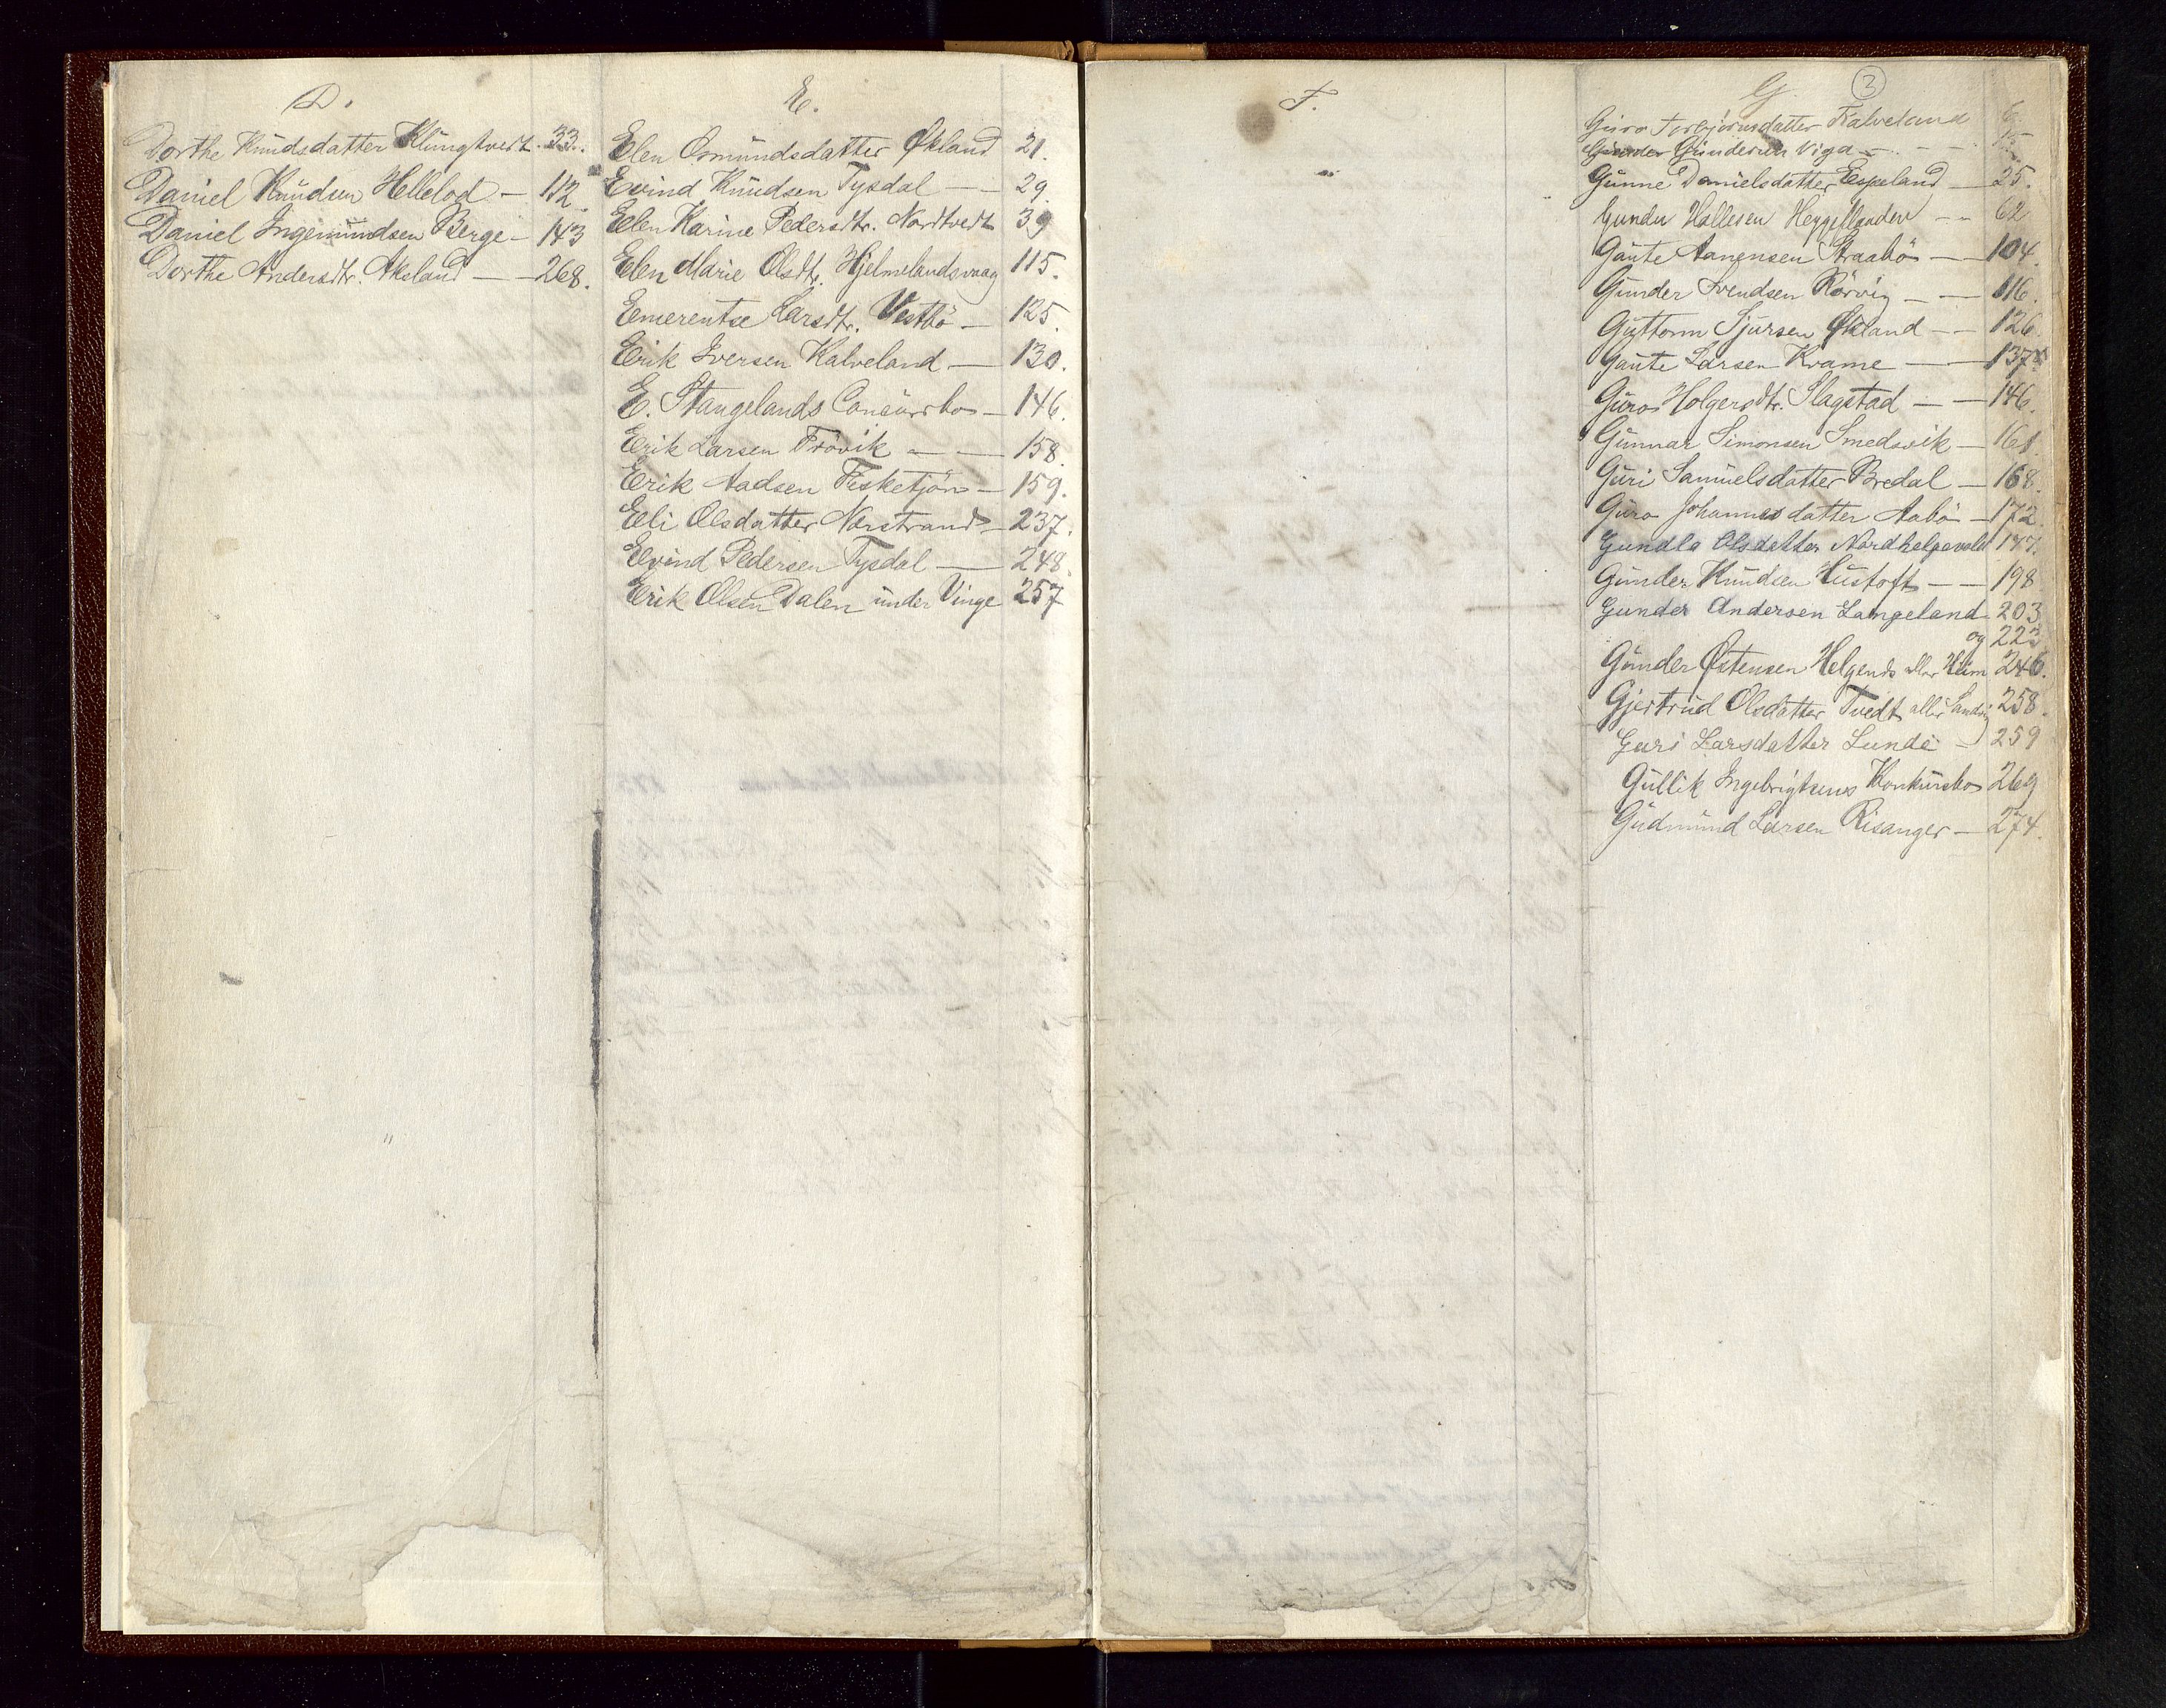 D.
Dorthe Knudsdatter Klungtvedt. 33.
Daniel Knudsen Hellelod — 112.
Daniel Ingemundsen Berge — 143
Dorthe Andersdtr. Akeland — 268.
E.
Elen Osmundsdatter Økland 21.
Eivind Knudsen Tysdal — 29.
Elen Karine Pedersdtr. Nordtvedt 39
Elen Marie Olsdtr. Hjelmelandsvaag 115.
Emerentse Larsdtr. Vestbö — 125.
Erik Iversen Kalveland — 130.
E. Stangelands Concursbo — 146.
Erik Larsen Frövik — 158.
Erik Aadsen Fisketjön — 159.
Eli Olsdatter Norstrand — 237.
Eivind Pedersen Tysdal — 248.
Erik Olsen Dalen under Vinge 257
F.
G. 3
Guro Torbjörnsdatter Kalveland 6.
Gunder Gundersen Viga — 15
Gunne Danielsdatter Espeland — 25.
Gunder Hallesen — 62
Gaute Aanensen Straabö — 104.
Gunder Svendsen Rörvig — 116.
Guttorm Sjursen Økland — 126.
Gaute Larsen Kvame — 137
Guro Holgersdtr. Slagstad — 146.
Gunnar Simonsen Smedsvik — 161.
Guri Samuelsdatter Bredal — 168.
Guro Johannesdatter Aabö — 172.
Gundla Olsdatter Nordhelgevold
Gunder Knudsen Tustoft — 198
Gunder Andersen Langeland 203
og 223
Gunder Østensen Helgends eller Heim 246.
Gjertrud Olsdatter Tvedt eller Sandvig 258.
Guri Larsdatter Lunde — 259
Gullik Ingebrigtsens Konkursbo 269
Gudmund Larsen Risanger — 274.